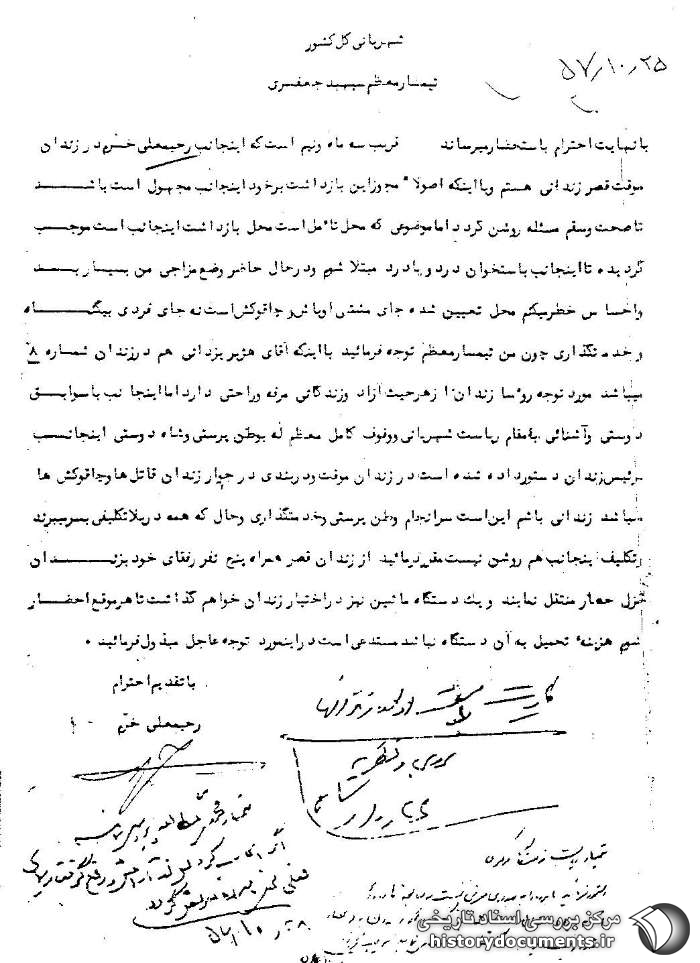 شهربانی کل کشور
۵۷/۱۰/۲۵
تیمسار معظم سپهبد جعفری
با نهایت احترام باستحضار میرساند قریب سه ماه ونیم است که اینجانب رحیمعلی خرم در زندان
موقت قصر زندانی هستم وبا اینکه اصولا" مجوز این بازداشت برخود اینجانب مجهول است باشد
تا صحت وسقم مسئله روشن گردد اما موضوعی که محل تامل است محل بازداشت اینجانب است موجب
گردیده تا اینجانب باستخوان درد و پادرد مبتلا شوم ودرحال حاضر وضع مزاجی من بسیار بد
واحساس خطر میکنم محل تعیین شده جای مشتی اوباش وچاقوکش است نه جای فردی بیگناه
وخدمتگذاری چون من تیمسار معظم توجه فرمائید با اینکه آقای هژبر یزدانی هم در زندان شماره ۸
میباشد مورد توجه روسا زندان از هرحیث آزاد وزندگانی مرفه وراحتی دارد اما اینجانب باسوابق
دوستی وآشنائی بمقام ریاست شهربانی ووقوف کامل معظم له بوطن پرستی وشاه دوستی اینجانب
برئیس زندان دستور داده شده است در زندان موقت ودربندی در جوار زندان قاتل ها وچاقوکش ها
میباشد زندانی باشم این است سرانجام وطن پرستی وخدمتگذاری وحال که همه در بلاتکلیفی بسر میبرند
وتکلیف اینجانب هم روشن نیست مقرر فرمائید از زندان قصر همراه پنج نفر رفقای خود بزندان
قزل حصار منتقل نمایند ویک دستگاه ماشین نیز در اختیار زندان خواهم گذاشت تا هر موقع احضار
شوم هزینه تحمیل به آن دستگاه نباشد مستدعی است در اینمورد توجه عاجل مبذول فرمائید ۰
با تقدیم احترام
رحیمعلی خرم
بررسی و نظریه
تیمسار ریاست
مرکز بررسی اسناد تاریخی
historydocuments.ir